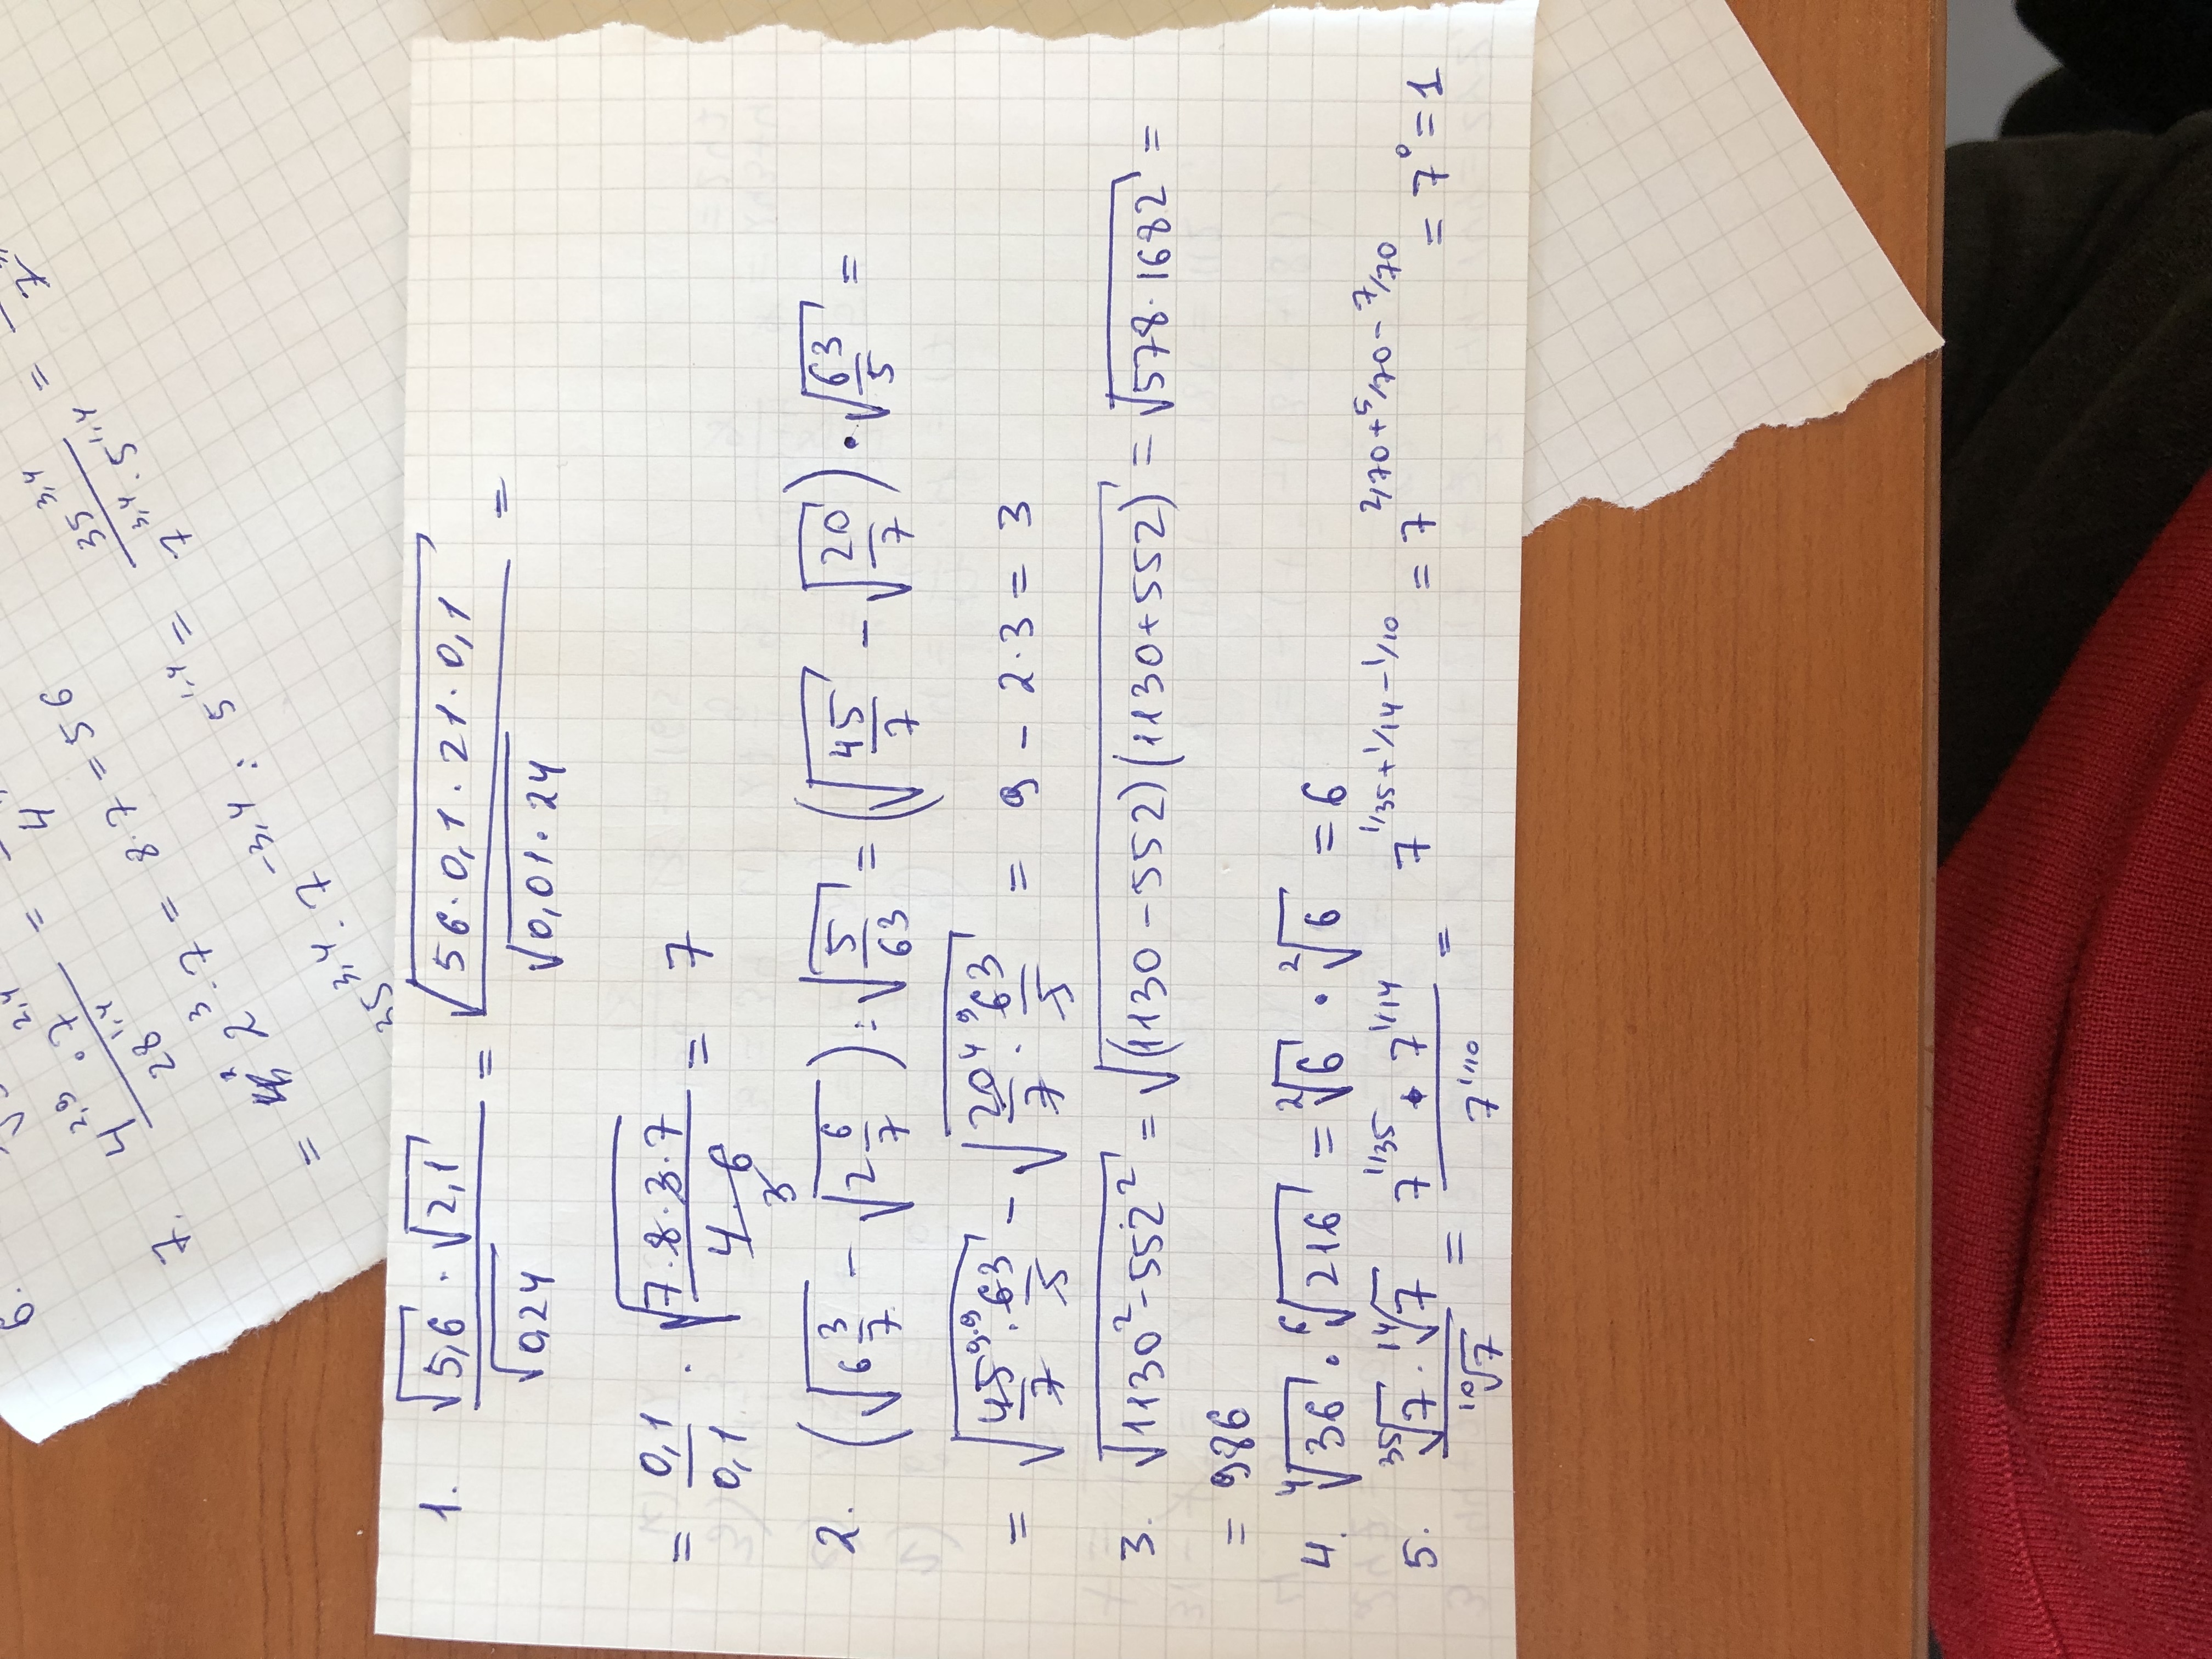 1. √5,6 · √2,1 / √0,24 = √56·0,1·21·0,1 / √0,01·24 =
= 0,1/0,1 · √7·8·3·7 / 4·6 3 = 7
2. (√6 3/7 − √2 6/7) : √5/63 = (√45/7 − √20/7) · √63/5 =
= √45 9·9/7 · 63/5 − √20 4 9/7 · 63/5 = 9 − 2·3 = 3
3. √1130² − 552² = √(1130−552)(1130+552) = √578·1682 =
= 986
4. ⁴√36 · ⁶√216 = ²√6 · ²√6 = 6
5. ³⁵√7 · ¹⁴√7 / ¹⁰√7 = 7^1/35 · 7^1/14 / 7^1/10 = 7^1/35+1/14−1/10 = 7^2/70+5/70−7/70 = 7⁰ = 1
6.
7. 4^2,9 · 7^2,4 / 28^1,4 =
= 2^3 · 7 = 8·7 = 56
35^3,4 · 7^−3,4 : 5^1,4 = 35^3,4 / 7^3,4 · 5^1,4 =